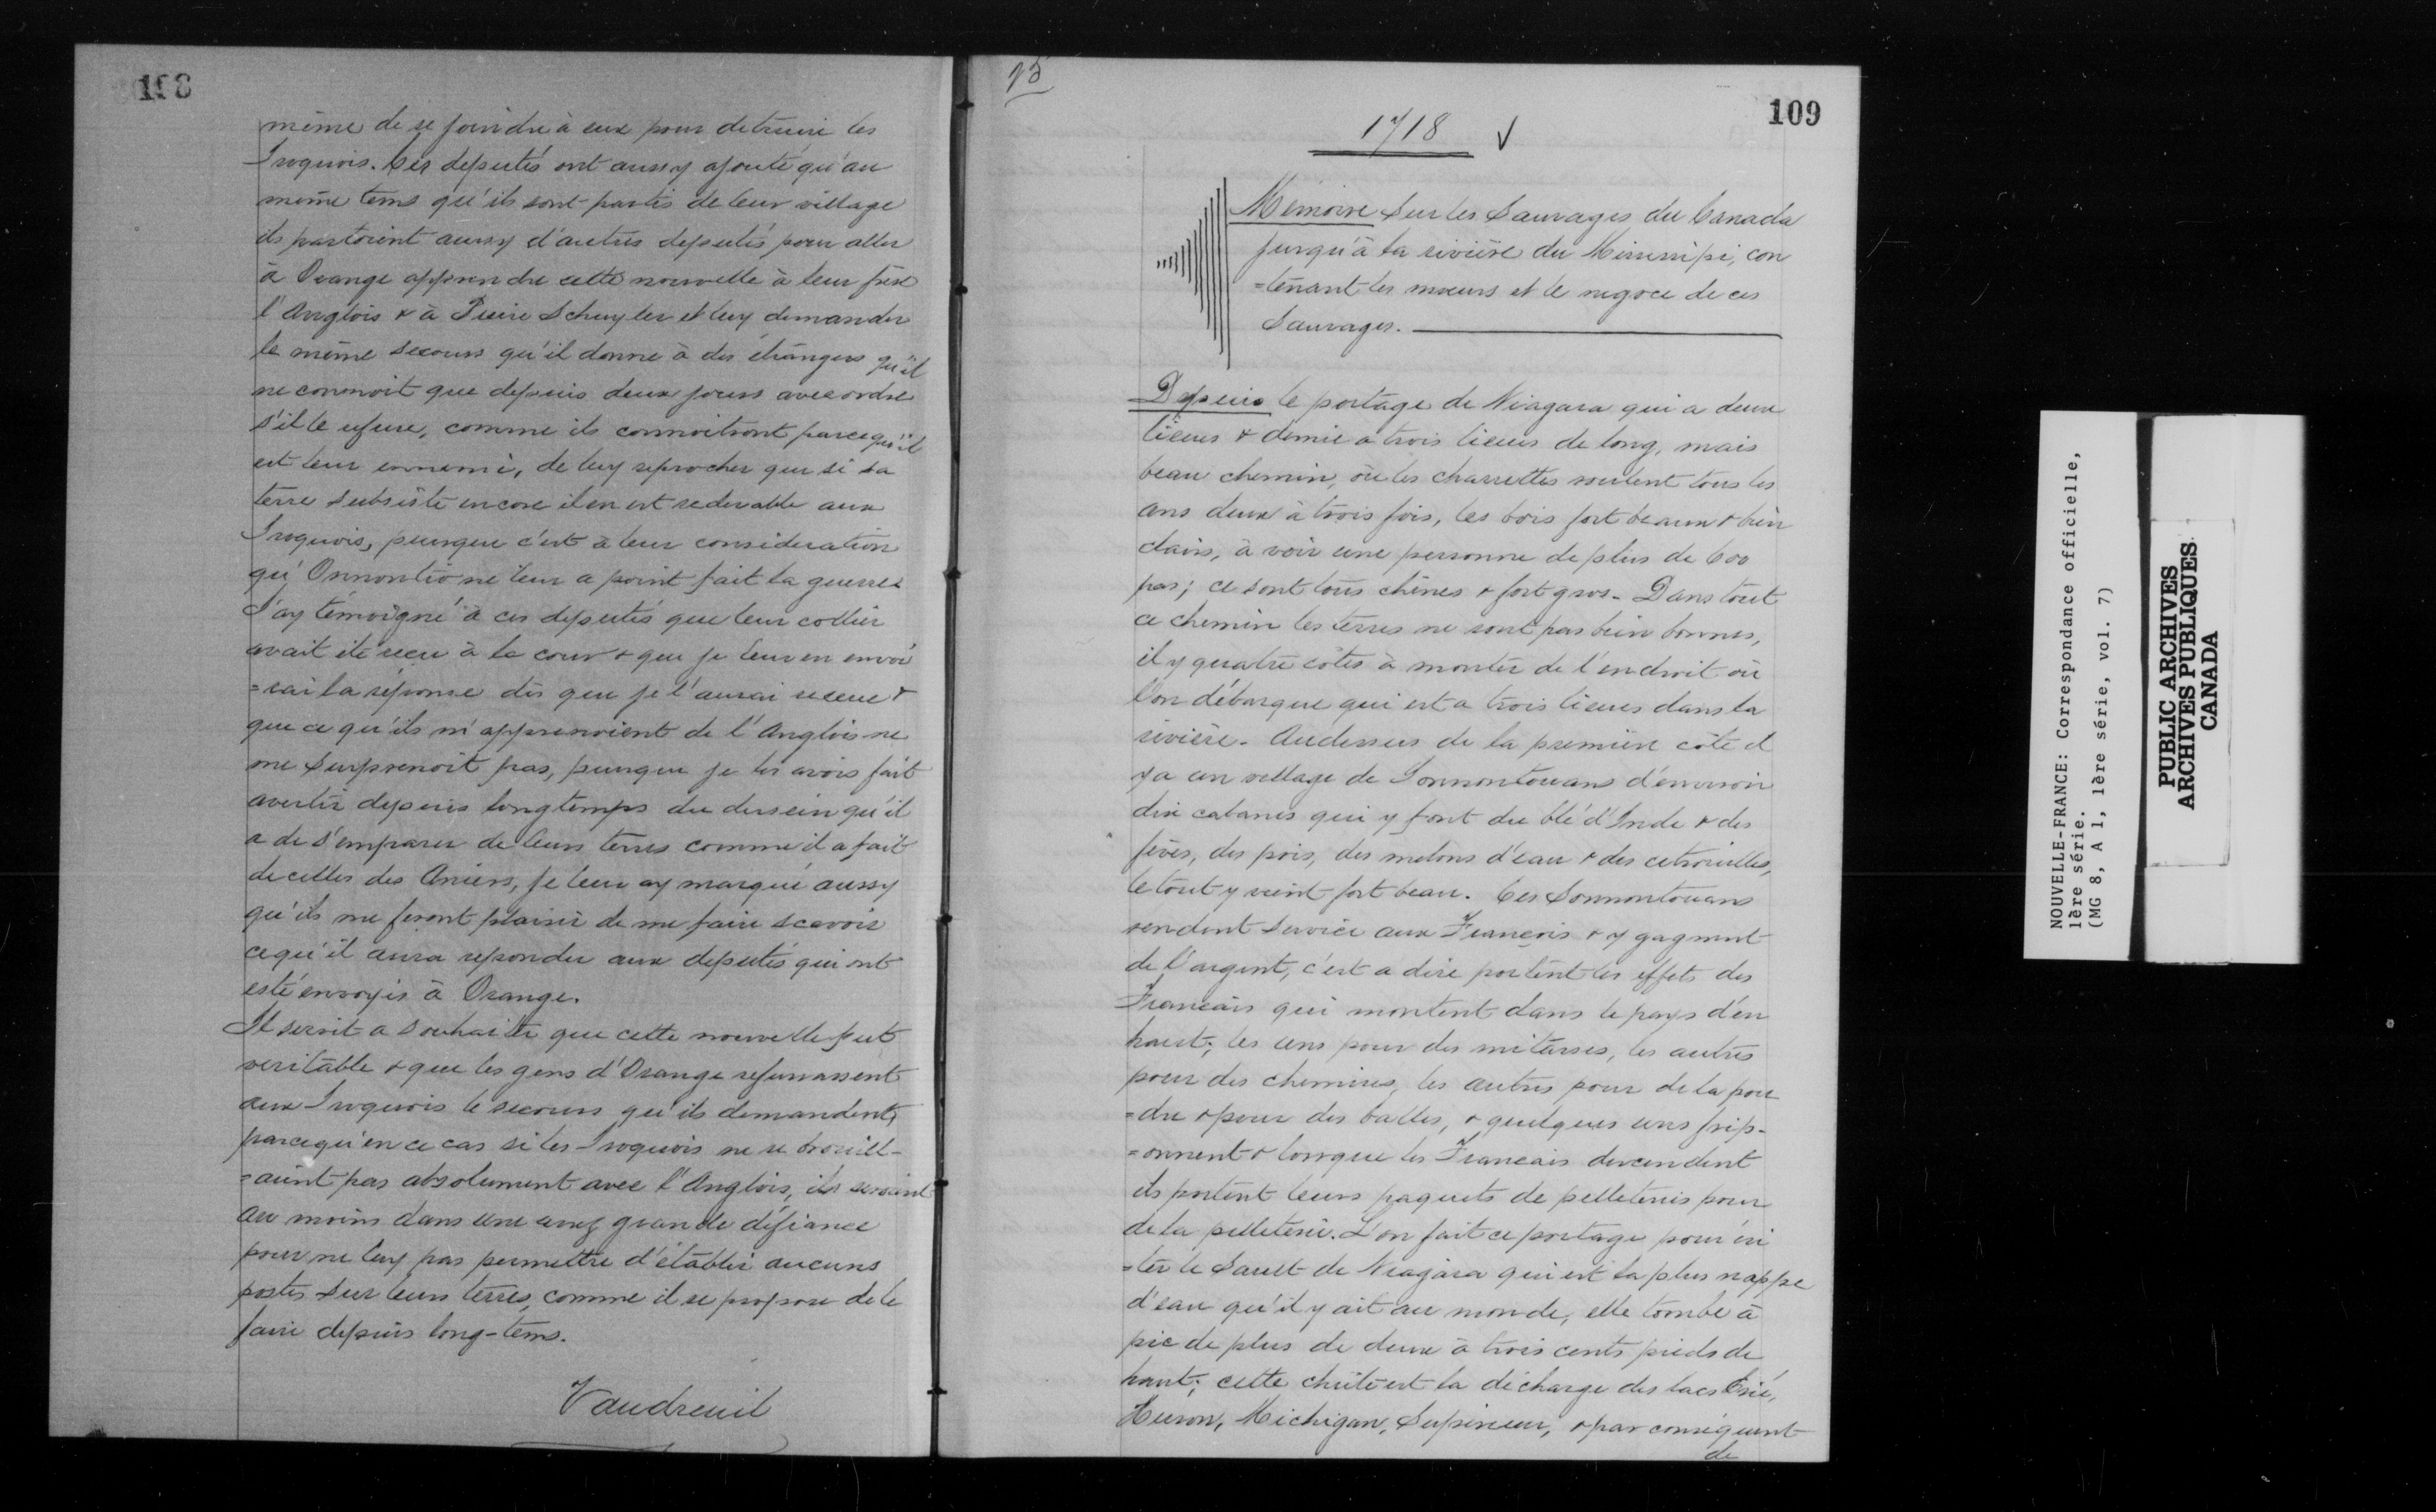 108
même de se joindre à eux pour detruire les
Iroquois. Ces deputés ont aussy ajouté qu'au
même tems qu'ils sont partis de leur village
ils partoient aussy d'autres deputés pour aller
à Orange apprendre cette nouvelle à leur frère
l'Anglois & à Pierre Schuyler et luy demander
le même secours qu'il donne à des étrangers qu'il
ne connoit que depuis deux jours avec ordre
s'il le refuse, comme ils connoitront parcequ'il
est leur ennemi, de luy reprocher que si sa
terre subsiste encore il en est redevable aux
Iroquois, puisque c'est à leur consideration
qu'Onnontio ne leur a point fait la guerre.
J'ay témoigné à ces deputés que leur collier
avait été recu à la cour & que je leur en envoi
=rai la réponse dès que je l'aurai recue &
que ce qu'ils m'apprenoient de l'Anglois ne
me surprenoit pas, puisque je les avois fait
avertir depuis longtemps du dessein qu'il
a de s'emparer de leurs terres comme il a fait
de celles des Aniers, je leur ay marqué aussy
qu'ils me feront plaisir de me faire scavoir
cequ'il aura repondu aux deputés qui ont
esté envoyés à Orange.
Il seroit a souhaiter que cette nouvelle fut
veritable & que les gens d'Orange refusassent
aux Iroquois le secours qu'ils demandent,
parcequ'en ce cas si les Iroquois ne se brouill-
=aient pas absolument avec l'Anglois, ils seroient
au moins dans une assez grande défiance
pour ne luy pas permettre d'établir aucuns
postes sur leurs terres, comme il se propose de le
faire depuis long-tems.
Vaudreuil
15
109
1718 √
Mémoire sur les Sauvages du Canada
jusqu'à la rivière du Missisipi, con
=tenant les mœurs et le negoce de ces
Sauvages.
Depuis le portage de Niagara qui a deux
lieues & demie a trois lieues de long, mais
beau chemin, où les charrettes roulent tous les
ans deux à trois fois, les bois fort beaux & bien
clairs, à voir une personne de plus de 600
pas; ce sont tous chênes & fort gros. Dans tout
ce chemin les terres ne sont pas bien bonnes,
il y quatre côtes à monter de l'endroit où
l'on débarque qui est a trois lieues dans la
rivière. Audessus de la première côte il
y a un village de Sonnontouans d'environ
dix cabanes qui y font du blé d'Inde & des
fèves, des pois, des melons d'eau & des citrouilles,
le tout y vient fort beau. Ces Sonnontouans
rendent service aux François & y gagnent
de l'argent, c'est a dire portent les effets des
Francais qui montent dans le pays d'en
haut; les uns pour des mitasses, les autres
pour des chemises, les autres pour de la pou
=dre & pour des balles, & quelques uns frip-
=onnent & lorsque les Francais descendent
ils portent leurs paquets de pelleteries pour
de la pelleterie. L'on fait ce portage pour évi
=ter le Sault de Niagara qui est la plus nappe
d'eau qu'il y ait au monde, elle tombe à
pic de plus de deux à trois cents pieds de
haut; cette chute est la décharge des lacs Erié,
Huron, Michigan, Supérieur, & par conséquent
de
NOUVELLE-FRANCE: Correspondance officielle,
1ère série.
(MG 8, A 1, 1ère série, vol. 7)
PUBLIC ARCHIVES
ARCHIVES PUBLIQUES
CANADA